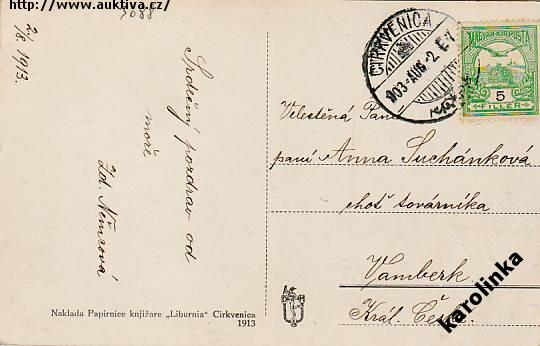 www.auktiva.cz/
3088
2/8. 1913.
Srdečný pozdrav od
moře
Zd. Němcová
CIRKVENICA
913 AUG -2
MAGYAR KIR. POSTA
5
FILLÉR
Velectěná Paní
paní Anna Suchánková
choť továrníka
Vamberk
Král. Čech
Naklada Papirnice knjižare „Liburnia" Cirkvenica
1913
karolinka